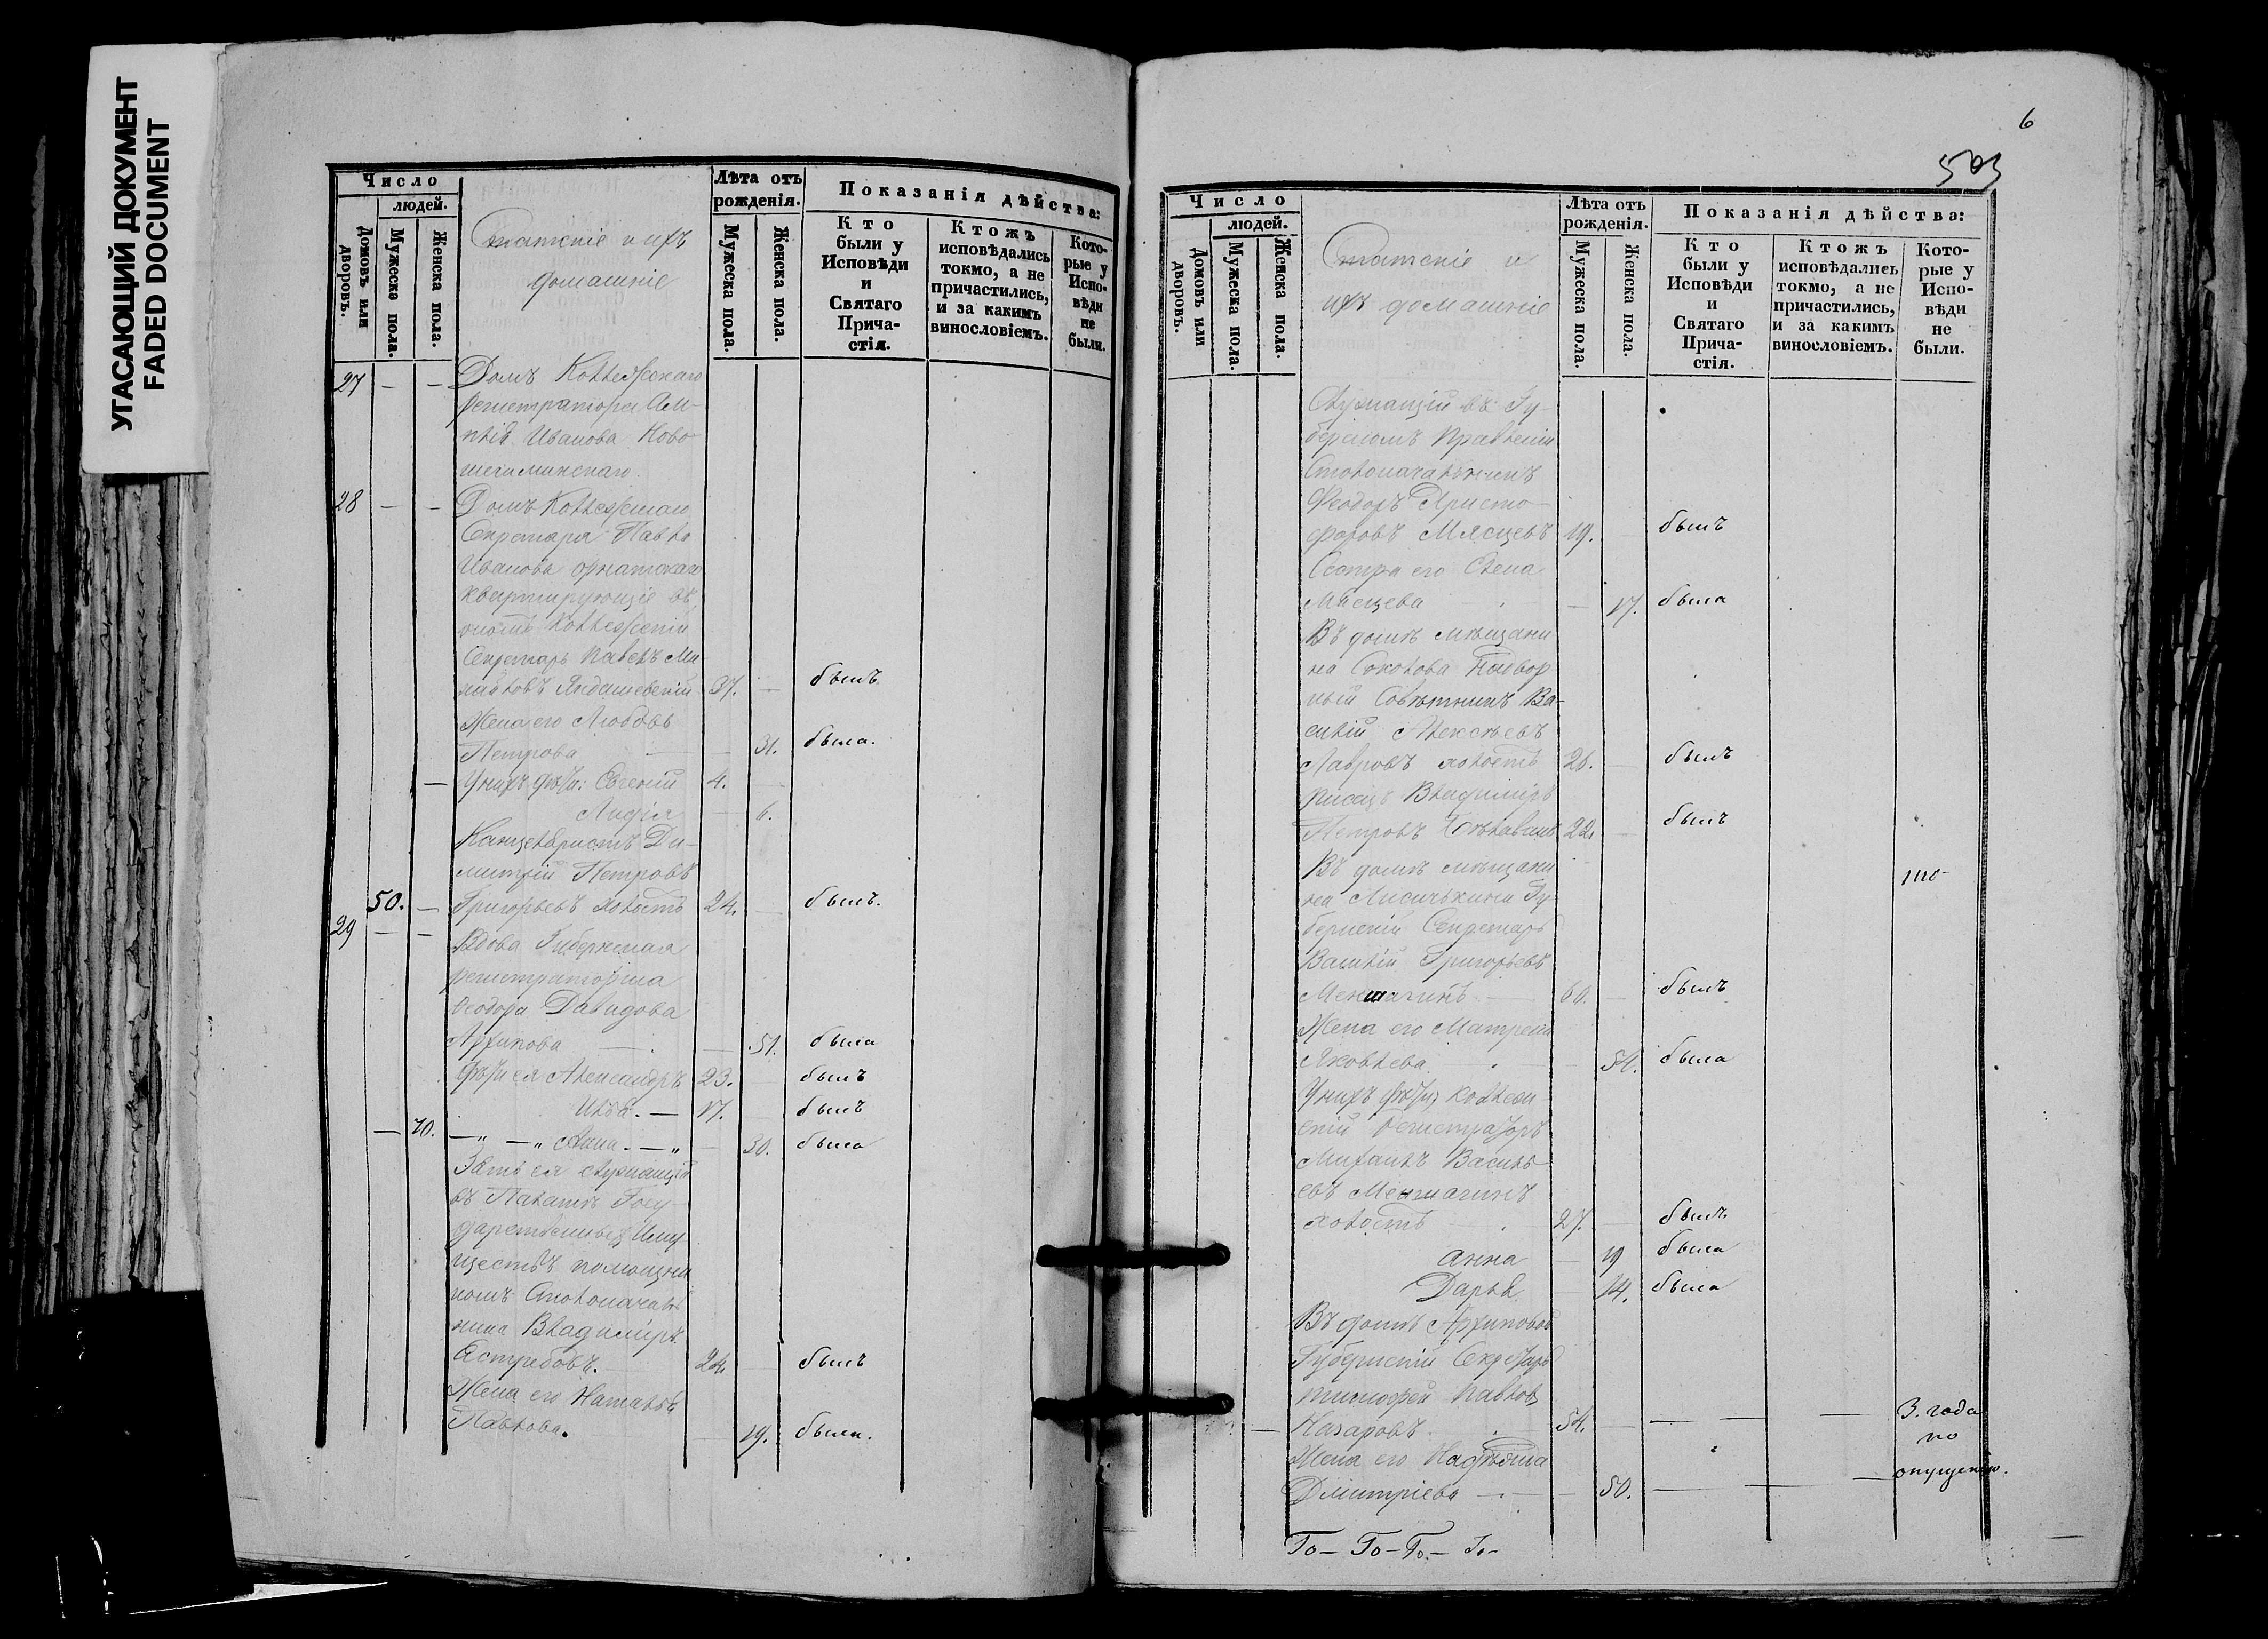 УГАСАЮЩИЙ ДОКУМЕНТ
FADED DOCUMENT
Число
людей.
Домовъ или дворовъ.
Мужеска пола.
Женска пола.
Статскіе и ихъ
домашніе
Лѣта отъ рожденія.
Мужеска пола.
Женска пола.
Показанія дѣйства:
Кто были у Исповѣди и Святаго Причастія.
Ктожъ исповѣдались токмо, а не причастились, и за какимъ винословіемъ.
Которые у Исповѣди не были.
27 — — Домъ Коллежскаго
регистратора
Иванова Ново-
28 — — Домъ Коллежскаго
Секретаря Павла
Иванова
квартирующіе въ
ономъ Коллежскій
Секретарь Павелъ Ми-
хайловъ Яндашевскій 37. — былъ
Жена его Любовь
Петрова — — 31. была.
— У нихъ дѣти: Евгеній 4.
Лидія — 6.
Канцеляристъ Ди-
митрій Петровъ
50. — Григорьевъ холостъ 24. — былъ.
29 — — Вдова Губернская
регистраторша
Феодора Давидова
Архипова — — 51. была
Дѣти ея Александръ 23. — былъ
Илья. — 17. — былъ
— 70. —„ —„ Анна. —„ — 30. была
Зять ея служащій
въ Палатѣ Госу-
дарственныхъ Иму-
ществъ помощни-
комъ Столоначаль-
ника Владиміръ
Ястребовъ. 24. — былъ
Жена его Наталья
Павлова. — 19. была.
6
503
Число
людей.
Домовъ или дворовъ.
Мужеска пола.
Женска пола.
Статскіе и
ихъ домашніе
Лѣта отъ рожденія.
Мужеска пола.
Женска пола.
Показанія дѣйства:
Кто были у Исповѣди и Святаго Причастія.
Ктожъ исповѣдались токмо, а не причастились, и за какимъ винословіемъ.
Которые у Исповѣди не были.
Служащій въ Гу-
бернскомъ Правленіи
Столоначальникъ
Феодоръ Христо-
форовъ Мясцевъ 19. — былъ
Сестра его Елена
Мясцева — — 17. была
Въ домѣ мѣщани-
на Соколова Надвор-
ный Совѣтникъ Ва-
силій Алексѣевъ
Лавровъ холостъ 26. — былъ
Писецъ Владиміръ
Петровъ 22. — былъ
Въ домѣ мѣщани-
на Лисичькина Гу-
бернскій Секретарь
Василій Григорьевъ
Меншагинъ — 60. — былъ
Жена его Матрена
Яковлева — 50. была
У нихъ дѣти, Коллеж-
скій Регистраторъ
Михаилъ Василь-
евъ Меншагинъ
холостъ 27. — былъ
Анна — 19 была
Дарья — 14. была
Въ домѣ Архиповой
Губернскій Секретарь
Тимофей Павловъ
— Назаровъ 54. — — — — 3. года
по
Жена его Надежда
опущенію.
Дмитріева — — 50. — —
То— То— То.— То—